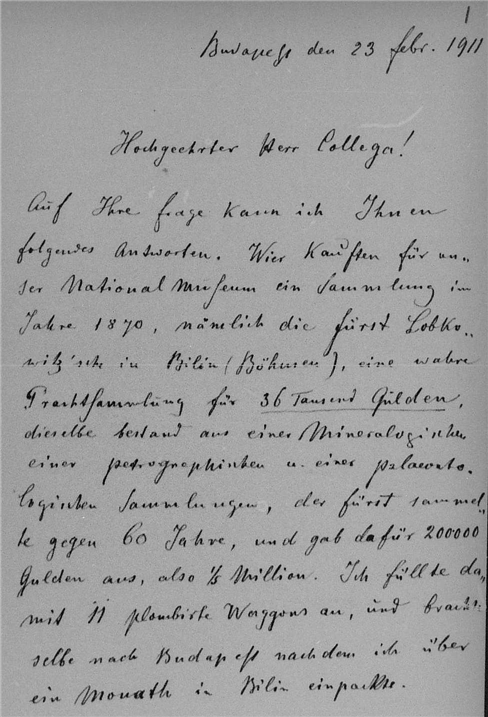 1
Budapest den 23 febr. 1911
Hochgeehrter Herr Collega!
Auf Ihre frage kann ich Ihnen
folgendes Antworten. Wier kauften für un„
ser National Museum ein Sammlung im
Jahre 1870, nämlich die fürst Lobko„
witz'sche in Bilin (Böhmen), eine wahre
Prachtsammlung für 36 Tausend Gulden,
dieselbe bestand aus einer Mineralogischen
einer petrographischen u. einer palaeonto„
logischen Sammlungen, der fürst sammel„
te gegen 60 Jahre, und gab dafür 200000
Gulden aus, also 1/5 Million. Ich füllte da„
mit 11 plombirte Waggons an, und brachte
selbe nach Budapest nachdem ich über
ein Monath in Bilin einpackte.